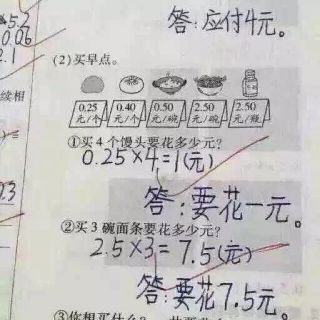 答:应付4元。
(2)买早点。
0.25元/个 0.40元/个 0.50元/碗 2.50元/碗 2.50元/瓶
①买4个馒头要花多少元?
0.25×4=1(元)
答:要花一元。
②买3碗面条要花多少元?
2.5×3=7.5(元)
答:要花7.5元。
③你想买什么?
续相